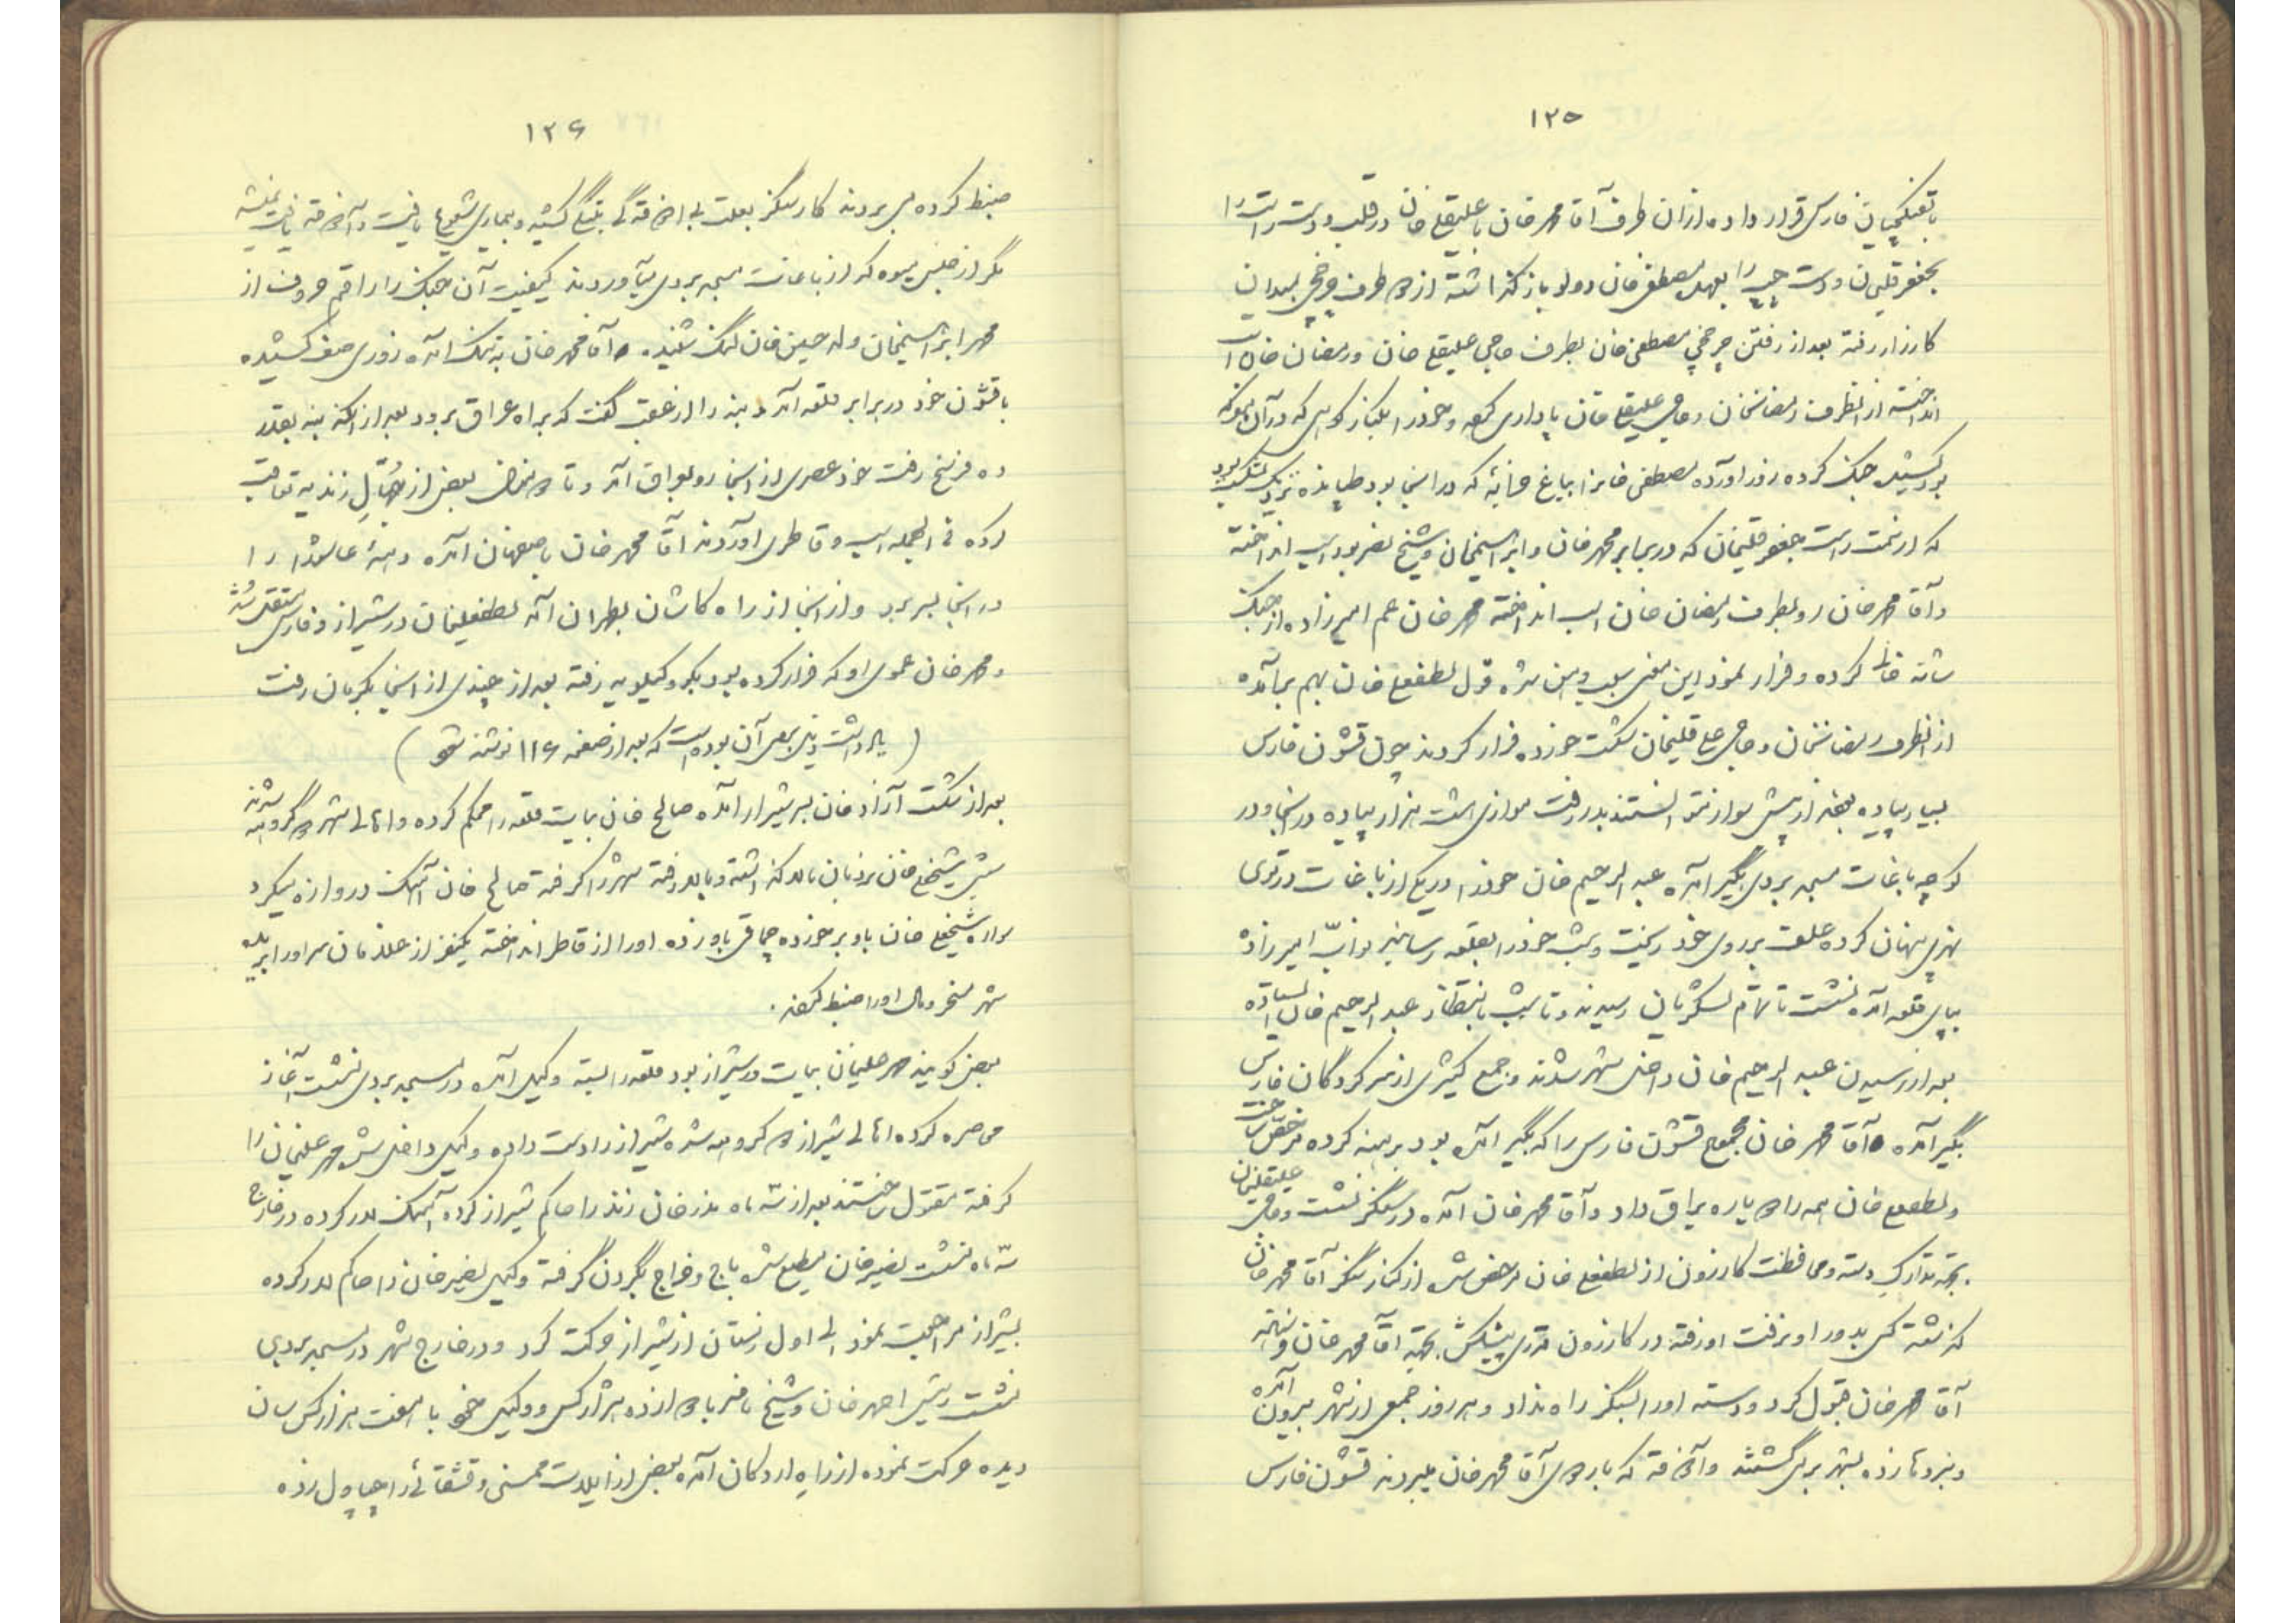 ۱۲۵
با تفنگچیان فارس قرار داده از ان طرف آقا محمد خان با علیقلی خان در قلب و دست راست را
بجعفر قلیخان و دست چپ را بعهده مصطفی خان دولو باز گذاشته از دو طرف چرخچی بمیدان
کارزار رفته بعد از رفتن چرخچی مصطفی خان بطرف حاجی علیقلی خان و رمضان خان اسب
انداخته از انطرف رمضانخان و حاجی علیقلی خان پاداری کرده و خود را بکنار کوهی که در آن
بود کشیده جنگ کرده زور آورده مصطفی خانرا بباغ خرابه که در اینجا بود طپانده نزدیک بشکست بود
که از سمت راست جعفر قلیخان که در برابر محمد خان و ابراهیمخان و شیخ نصر بود اسب انداخته
و آقا محمد خان رو بطرف رمضان خان اسب انداخته محمد خان عم امیرزاده از جنگ
شانه خالی کرده و فرار نمود این معنی سبب وهن شده قول لطفعلی خان بهم برآمده
از انطرف رمضانخان و حاجی علی قلیخان شکست خورده فرار کردند چون قشون فارس
بسیار پیاده بعضی از پیش سوار نتوانستند بدر رفت موازی هشت هزار پیاده در اینجا و در
کوچه باغات مسجد بردی بگیر آمده عبد الرحیم خان خود را در یکی از باغات در توی
نهری پنهان کرده علف بر روی خود ریخت و شب خود را بقلعه رسانید نواب امیرزاده
بپای قلعه آمده نشست تا تمام لشکریان رسیدند و تا شب بانتظار عبد الرحیم خان ایستاده
بعد از رسیدن عبد الرحیم خان داخل شهر شدند و جمع کثیری از سرکردگان فارس
بگیر آمده آقا محمد خان مجموع قشون فارس را که بگیر آمده بود برهنه کرده مرخص ساخت
و لطفعلی خان همه را دو باره یراق داد و آقا محمد خان آمده در سنگر نشست و حاجی علیقلیخان
بجهة تدارک دسته و محافظت کازرون از لطفعلی خان مرخص شد از کنار سنگر آقا محمد خان
گذشته کسی بدور او نرفت او رفته در کازرون قدری پیشکش بجهة آقا محمد خان فرستاده
آقا محمد خان قبول کرد و دسته او را بسنگر راه نداد و هر روز جمعی از شهر بیرون آمده
و نبرد تا زده بشهر بر می گشتند و آذوقه که باردوی آقا محمد خان میبردند قشون فارس
۱۲۶
ضبط کرده می بردند کار سنگر بعلت بی اذوقه گی بتنگی کشیده و بیماری شیوع یافت و آذوقه یافت نمیشد
مگر از جنس میوه که از باغات مسجد بردی میآوردند کیفیت آن جنگ را راقم حروف از
محمد ابراهیمخان ولد حسین خان لنگ شنیده آقا محمد خان به تنگ آمده روزی صف کشیده
با قشون خود در برابر قلعه آمد و بنه را از عقب گفت که براه عراق برود بعد از آنکه بنه بقدر
ده فرسخ رفت خود عصری از اینجا رو بعراق آمد و تا دو منزل بعضی از جُهّالِ زندیه تعاقب
کرده فی الجمله اسب و قاطری آوردند آقا محمد خان باصفهان آمده دهۀ عاشورا را
در اینجا بسر برد و از اینجا از راه کاشان بطهران آمد لطفعلیخان در شیراز و فارس مستقل شد
و محمد خان عموی او که فرار کرده بود بکوه کیلویه رفته بعد از چندی از اینجا بکرمان رفت
( یادداشت ذیل بعد آن بوده است که بعد از صفحه ۱۱۶ نوشته شود )
بعد از شکست آزاد خان بر شیراز آمده صالح خان بیات قلعه را محکم کرده و اهالی شهر دو گروه شدند
شبی شیخعلی خان نردبان بالا گذاشته و بالا رفته شهر را گرفته صالح خان آهنگ دروازه میکرد
سواره شیخعلی خان باو برخورده چماقی باو زده او را از قاطر انداخته یکنفر از غلامان سر او را بریده
شهر مسخر و مال او را ضبط کردند .
بعض گویند محمد علیخان بیات در شیراز بود قلعه را بسته وکیل آمده در مسجد بردی نشست آغاز
محاصره کرده اهالی شیراز دو گروه شده شیراز را دست داده وکیل داخل شد محمد علیخان را
گرفته مقتول ساختند بعد از سه ماه نذر خان زند را حاکم شیراز کرده آهنگ لار کرده در خارج
سه ماه نشست نصیر خان مطیع شده باج و خراج بگردن گرفته وکیل نصیر خان را حاکم لار کرده
بشیراز مراجعت نمود الی اول زمستان از شیراز حرکت کرد و در خارج شهر در مسجد بردی
نشست رئیس احمد خان و شیخ ناصر با دوازده هزار کس و وکیل خود با هفت هزار کس سان
دیده حرکت نموده از راه اردکان آمده بعضی از ایلات ممسنی و قشقائی را چپاول زده